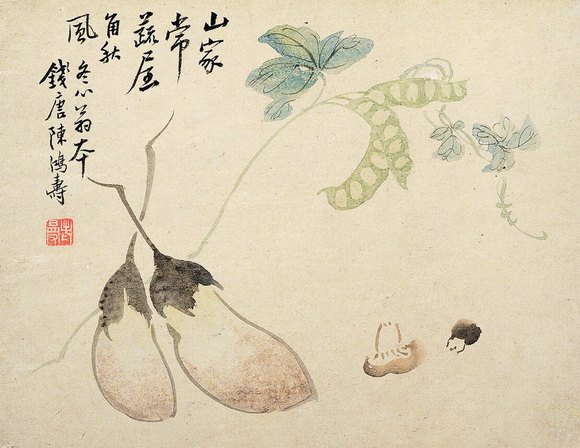 山家
常
蔬屋
角秋
風
冬心翁本
錢唐陳鴻壽